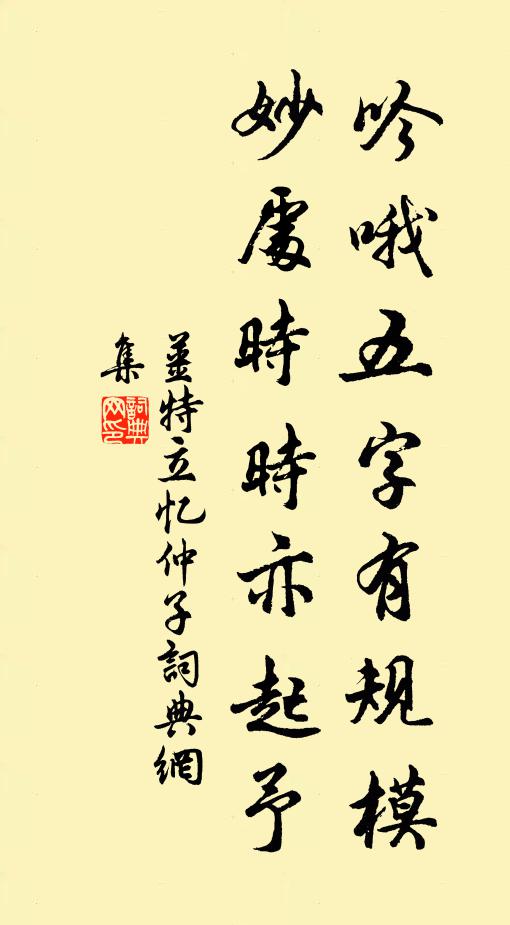 吟哦五字有规模
妙處時時亦起予
姜特立忆仲子詞典網
集
詞典
网印